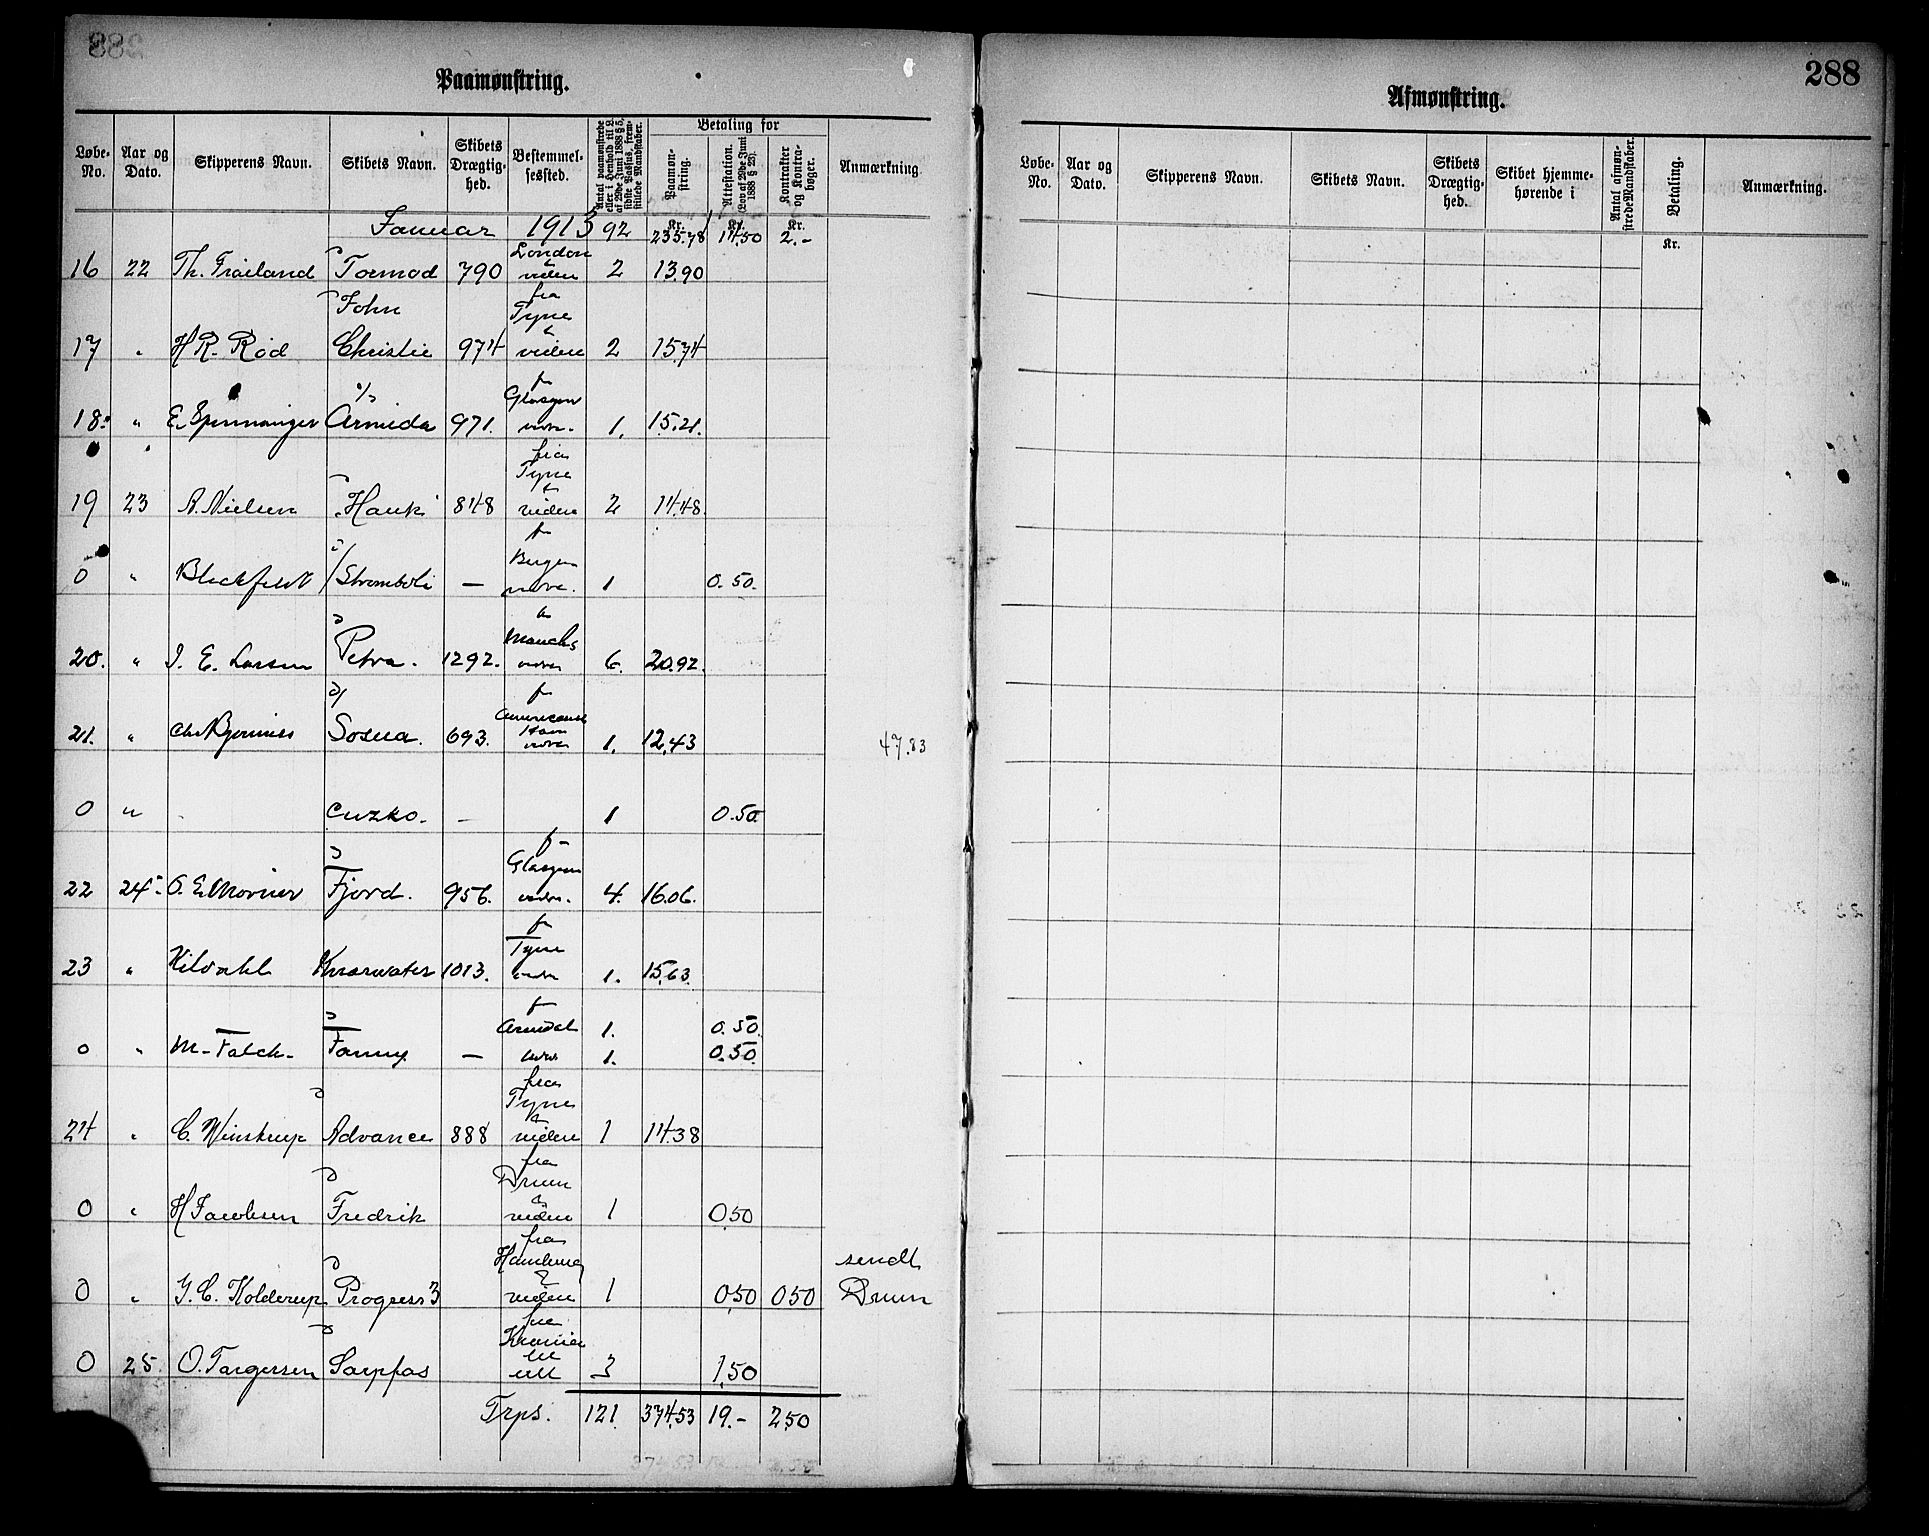 288
Paamønstring.
Løbe-No. Aar og Dato. Skipperens Navn. Skibets Navn. Skibets Drægtighed. Bestemmelsessted. Antal paamønstrede eller i Henhold til L. af 29de Juni 1888 § 5, sidste Passus, fremstillede Mandskaber. Betaling for Paamønstring. Attestation. (Lov af 29de Juni 1888 § 23). Kontrakter og Kontrabøger. Anmærkning
Kr. Kr. Kr.
Januar 1913 92 235.78 14.50 2.-
London
16 22 Th. Frøiland Tormod 790 & viden 2 13.90
John fra Tyne
17 " H R. Rød Christie 974 & viden 2 15.74
s/s f Glasgow
18 " E. Spinnanger Armida 971. vidre. 1. 15.21.
fra Tyne
19 23 A. Nielsen Hauk 848 & viden 2 14.48
f Bergen
0 " Blichfeldt Stromboli — vidre. 1 0.50.
Manchs
20. " J. E. Larsen Petra. 1292. vidre 6. 20.92.
f
21. " Sosua. 693. vidre 1. 12.43 47.83
0 " Cuzko. - 1 0.50
f Glasgow
22 24 O. E. Fjord. 956. vidre. 4. 16.06.
f Tyne
23 " Kildahl 1013. vidre 1. 15.63.
f Arendal 1. 0.50.
0 " M. Falck. Fanny — 1. 0.50.
fra Tyne
24 " C. Winstrup Advance 888 & viden 1 14.38
fra Drmn
0 " H Jacobsen Fredrik & viden 1 0.50
fra Hamburg sendt
0 " J. C. Kolderup Progress 3 & viden 1 0.50 0.50 Drmn
fra
0 25. O. Torgersen Sarpfos 3 1.50
Trps. 121 374.53 19.- 2.50
288
Afmønstring.
Løbe-No. Aar og Dato. Skipperens Navn. Skibets Navn. Skibets Drægtighed. Skibet hjemmehørende i Antal afmønstrede Mandskaber. Betaling. Anmærkning.
Kr.